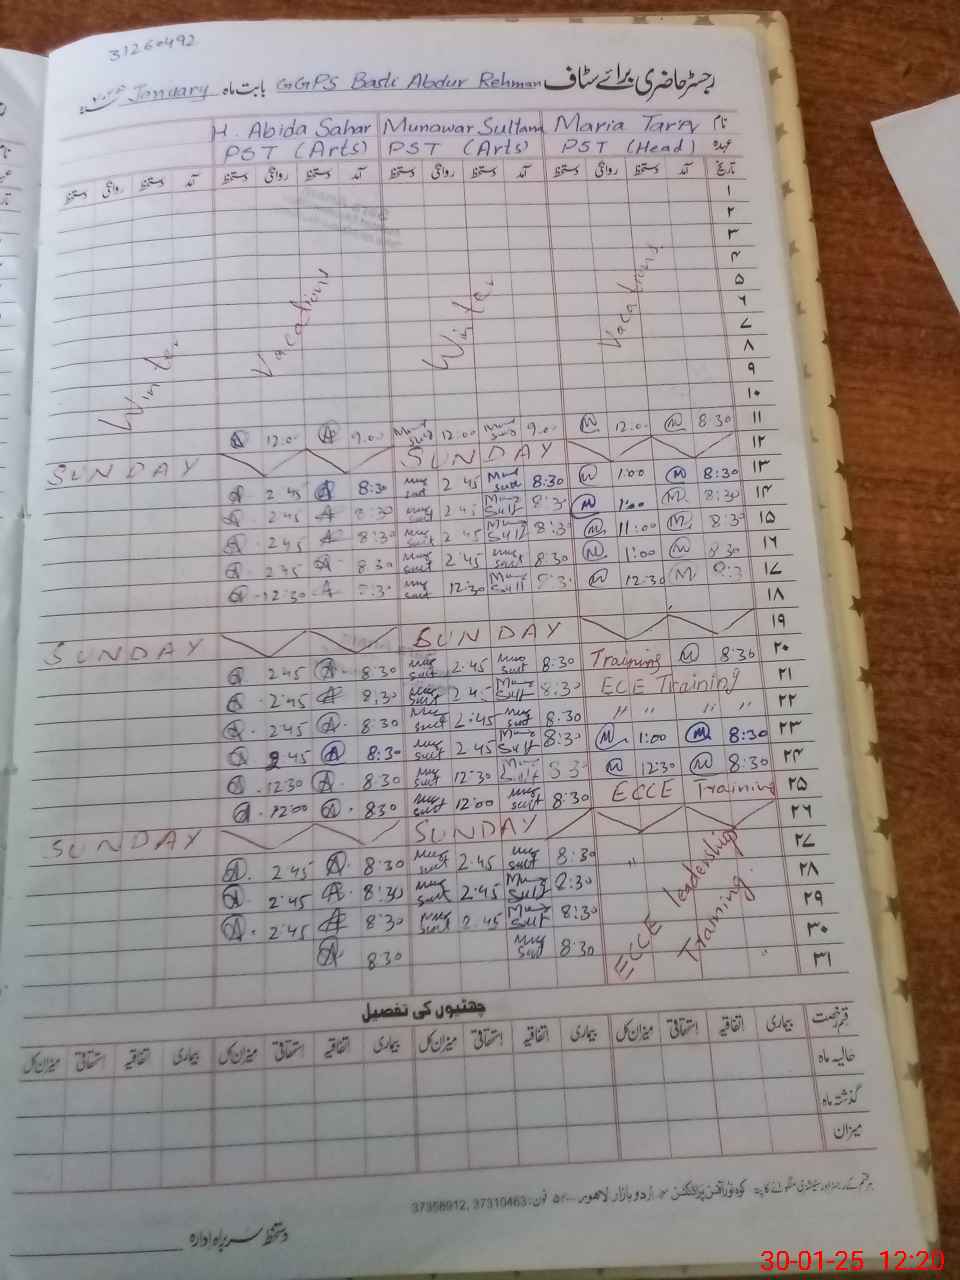 31260492
رجسٹر حاضری برائے سٹاف GGPS Basti Abdur Rehman بابت ماہ January
نام Maria Tariq Munawar Sultana H. Abida Sahar
عہدہ PST (Head) PST (Arts) PST (Arts)
تاریخ آمد دستخط روانگی دستخط آمد دستخط روانگی دستخط آمد دستخط روانگی دستخط آمد دستخط روانگی دستخط
۱
۲
۳
۴
۵
۶
۷
۸
۹
۱۰
Winter Vacations Winter Vacations
۱۱ 8:30 M 12:00 M 9:00 12:00 9:00 A 12:00 A
۱۲ SUNDAY SUNDAY
۱۳ 8:30 M 1:00 M 8:30 2:45 8:30 A 2:45 A
۱۴ 8:30 M 1:00 M 8:30 2:45 8:30 A 2:45 A
۱۵ 8:30 M 11:00 M 8:30 2:45 8:30 A 2:45 A
۱۶ 8:30 M 1:00 M 8:30 2:45 8:30 A 2:45 A
۱۷ 8:3 M 12:30 M 8:30 12:30 8:30 A 12:30 A
۱۸
۱۹ SUNDAY SUNDAY
۲۰ 8:30 M Training 8:30 2:45 8:30 A 2:45 A
۲۱ ECE Training 8:30 2:45 8:30 A 2:45 A
۲۲ " " " " 8:30 2:45 8:30 A 2:45 A
۲۳ 8:30 M 1:00 M 8:30 2:45 8:30 A 2:45 A
۲۴ 8:30 M 12:30 M 8:30 12:30 8:30 A 12:30 A
۲۵ ECCE Training 8:30 12:00 830 A 12:00 A
۲۶ SUNDAY SUNDAY
۲۷ " 8:30 2:45 8:30 A 2:45 A
۲۸ 8:30 2:45 8:30 A 2:45 A
۲۹ 8:30 2:45 8:30 A 2:45 A
۳۰ 8:30 830 A
۳۱
ECCE leadership Training.
چھٹیوں کی تفصیل
قسم رخصت بیماری اتفاقیہ استحقاقی میزان کل بیماری اتفاقیہ استحقاقی میزان کل بیماری اتفاقیہ استحقاقی میزان کل بیماری اتفاقیہ استحقاقی میزان کل
حالیہ ماہ
گذشتہ ماہ
میزان
اردو بازار لاہور فون: 37310463, 37356912
دستخط سربراہ ادارہ
30-01-25 12:20